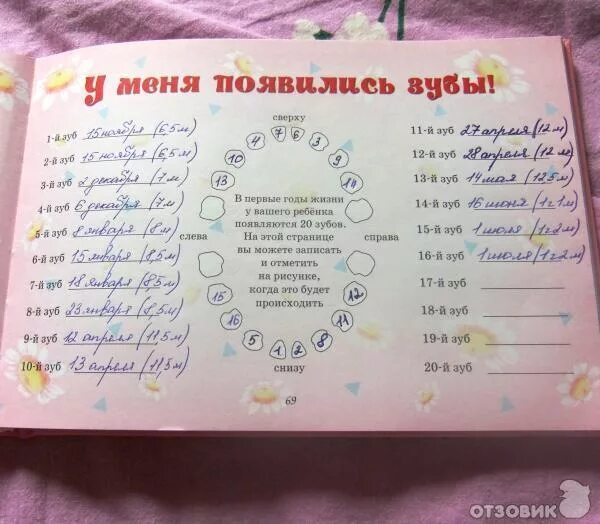 У меня появились зубы!
1-й зуб 15 ноября (6,5 м)
2-й зуб 15 ноября (6,5 м)
3-й зуб 2 декабря (7 м)
4-й зуб 6 декабря (7 м)
5-й зуб 8 января (8 м)
6-й зуб 15 января (8,5 м)
7-й зуб 18 января (8,5 м)
8-й зуб 23 января (8,5 м)
9-й зуб 12 апреля (11,5 м)
10-й зуб 13 апреля (11,5 м)
сверху
4 7 6 3
10 9
13 14
слева
справа
В первые годы жизни
у вашего ребёнка
появляются 20 зубов.
На этой странице
вы можете записать
и отметить
на рисунке,
когда это будет
происходить
15 12
16 11
5 1 2 8
снизу
11-й зуб 27 апреля (12 м)
12-й зуб 28 апреля (12 м)
13-й зуб 14 мая (12,5 м)
14-й зуб 16 июня (1г1м)
15-й зуб 1 июля (1г2м)
16-й зуб 1 июля (1г2м)
17-й зуб
18-й зуб
19-й зуб
20-й зуб
69
ОТЗОВИК